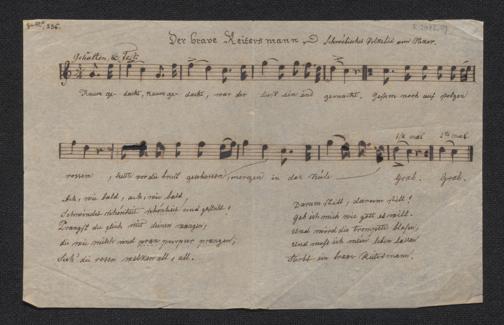 Der brave Reitersmann Schwäbisches Volkslied von Hauer.
Gehalten, u. Fest.
Kaum ge- dacht, kaum ge- dacht, war der Lust ein end gemacht. Gestern noch auf stolzen
1te mal 2te mal
rossen, heute vor die brust geschossen, morgen in das kühle Grab. Grab.
Ach, wie bald, ach, wie bald,
Schwindet schönheit und gestalt!
Prangst du gleich mit deinen wangen,
die wie milch und purpur prangen,
Sieh! die rosen welken all, all.
Darum still, darum still!
Geb ich mich wie gott es will.
Und wird die trompete blasen,
Und muss ich mein leben lassen
Stirbt ein brav Reitersmann.